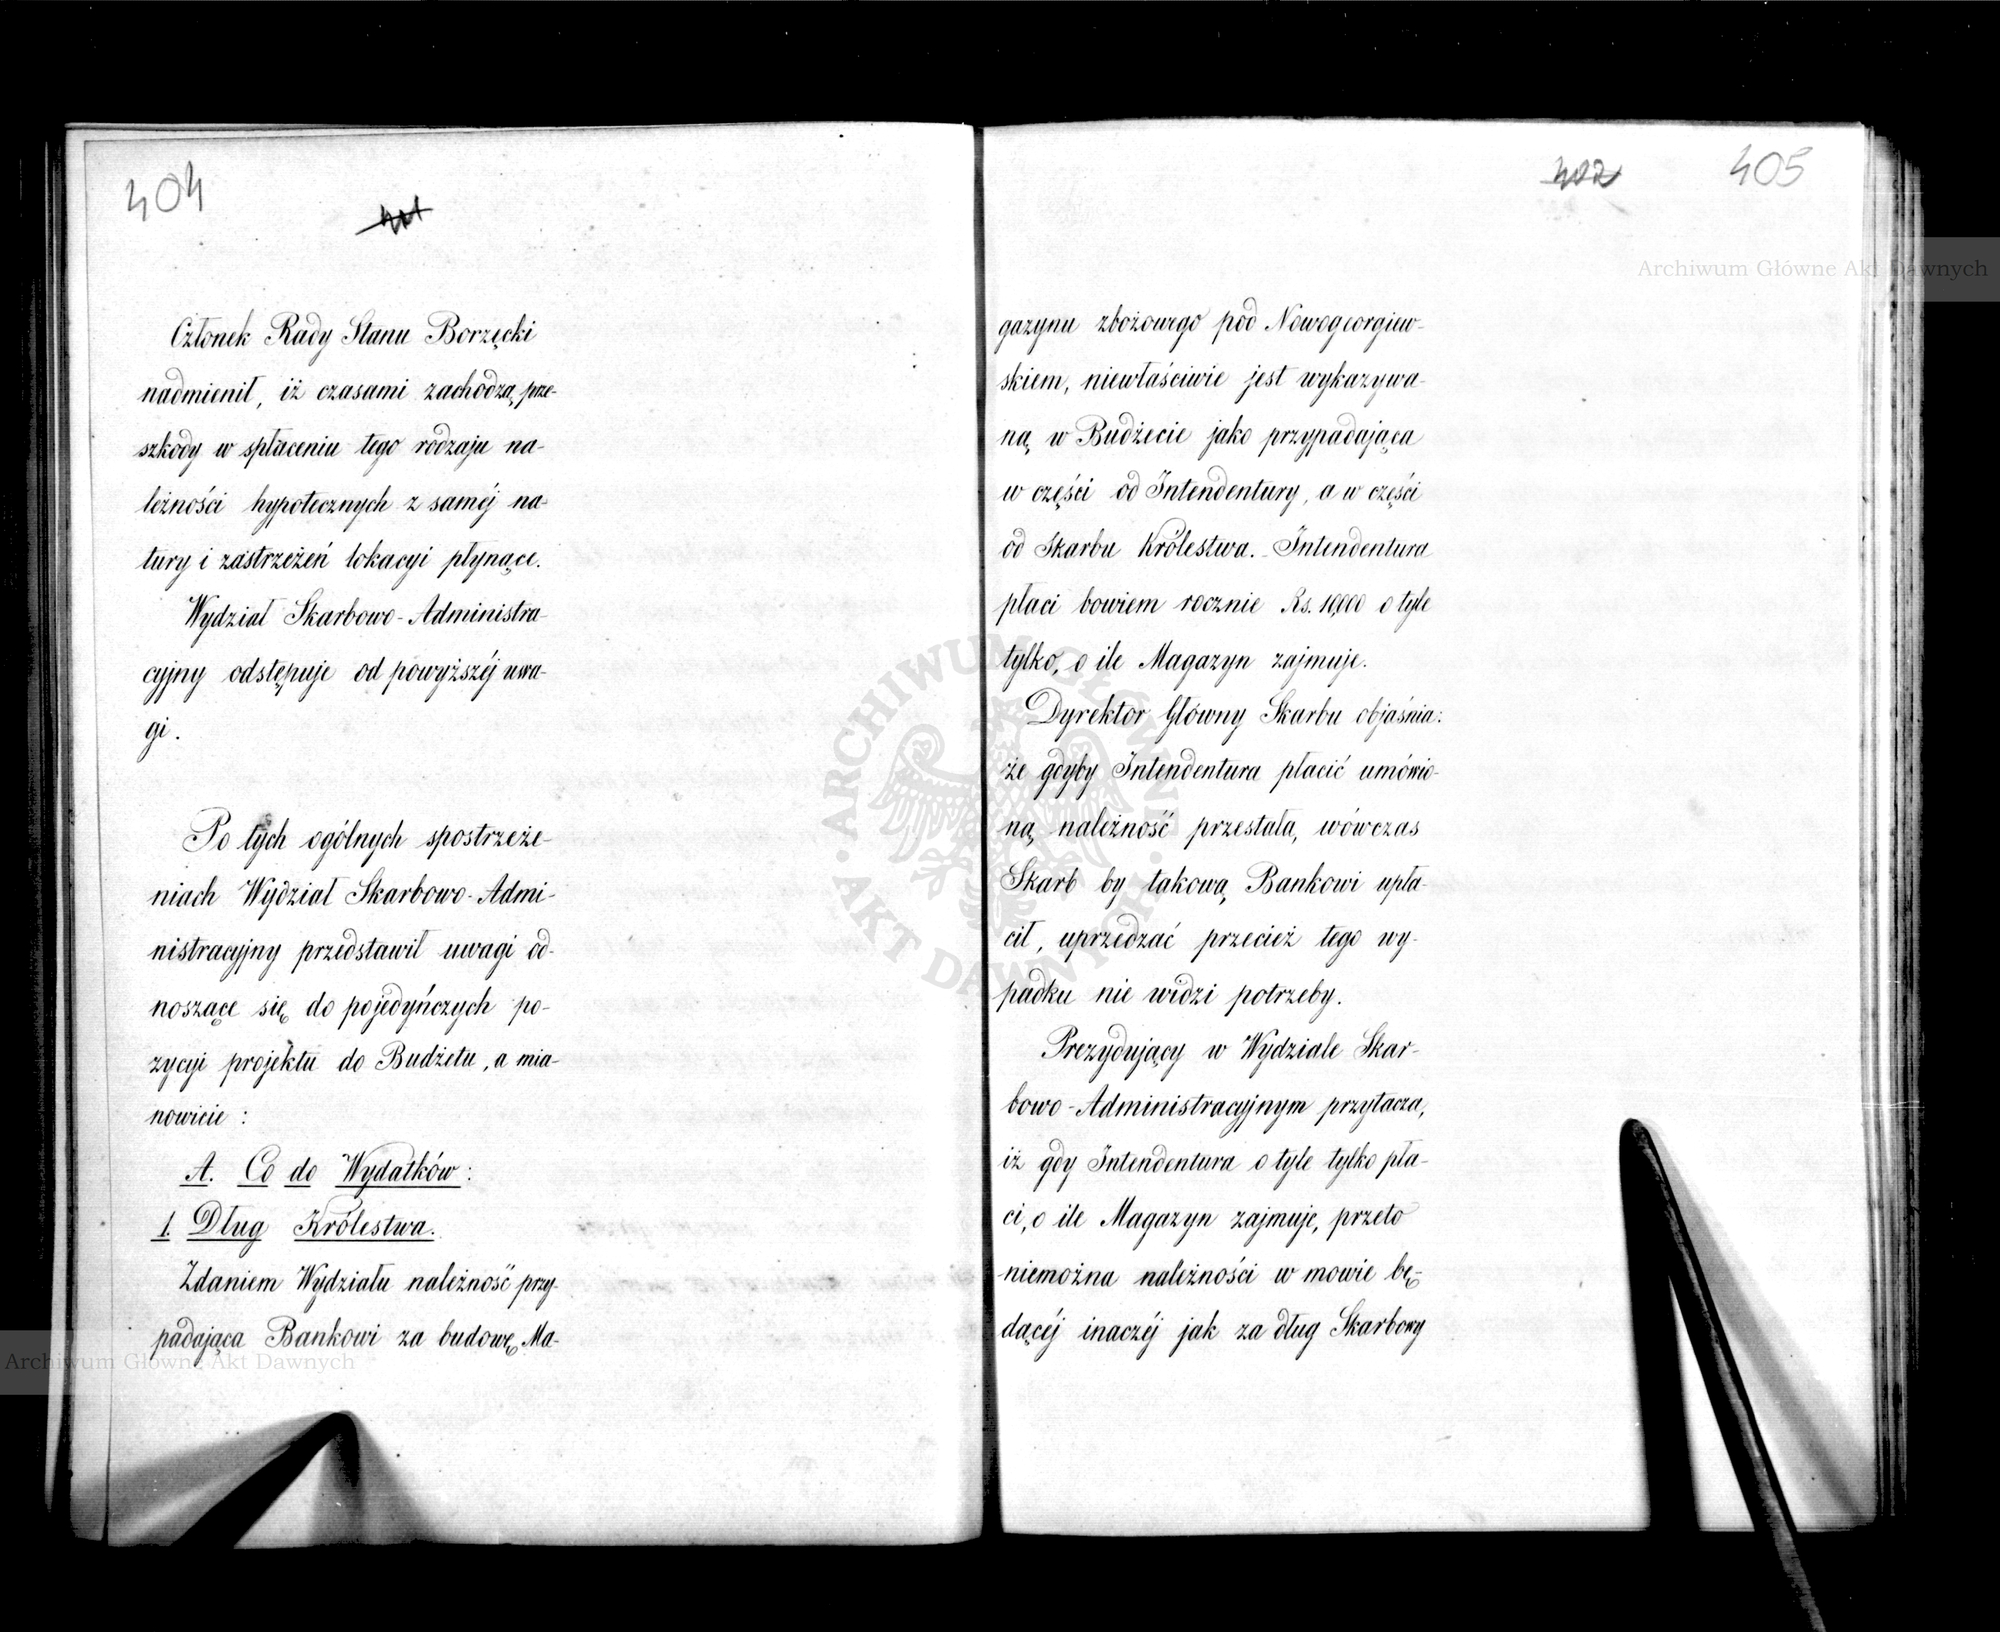 404
401
Członek Rady Stanu Borzęcki
nadmienił, iż czasami zachodzą prze-
szkody w spłaceniu tego rodzaju na-
leżności hypotecznych z saméj na-
tury i zastrzeżeń lokacyi płynące.
Wydział Skarbowo-Administra-
cyjny odstępuje od powyższéj uwa-
gi.
Po tych ogólnych spostrzeże-
niach Wydział Skarbowo-Admi-
nistracyjny przedstawił uwagi od-
noszące się do pojedyńczych po-
zycyi projektu do Budżetu, a mia-
nowicie:
A. Co do Wydatków:
1. Dług Królestwa.
Zdaniem Wydziału należność przy-
padająca Bankowi za budowę Ma-
402 405
gazynu zbożowego pod Nowogeorgiew-
skiem, niewłaściwie jest wykazywa-
ną w Budżecie jako przypadająca
w części od Intendentury, a w części
od Skarbu Królestwa. Intendentura
płaci bowiem rocznie Rs. 10,000 o tyle
tylko, o ile Magazyn zajmuje.
Dyrektor Główny Skarbu objaśnia:
że gdyby Intendentura płacić umówio-
ną należność przestała, wówczas
Skarb by takową Bankowi upła-
cił, uprzedzać przecież tego wy-
padku nie widzi potrzeby.
Prezydujący w Wydziale Skar-
bowo-Administracyjnym przytacza,
iż gdy Intendentura o tyle tylko pła-
ci, o ile Magazyn zajmuje, przeto
niemożna należności w mowie bę-
dącéj inaczéj jak za dług Skarbowy
Archiwum Główne Akt Dawnych
Archiwum Główne Akt Dawnych
ARCHIWUM GŁÓWNE AKT DAWNYCH